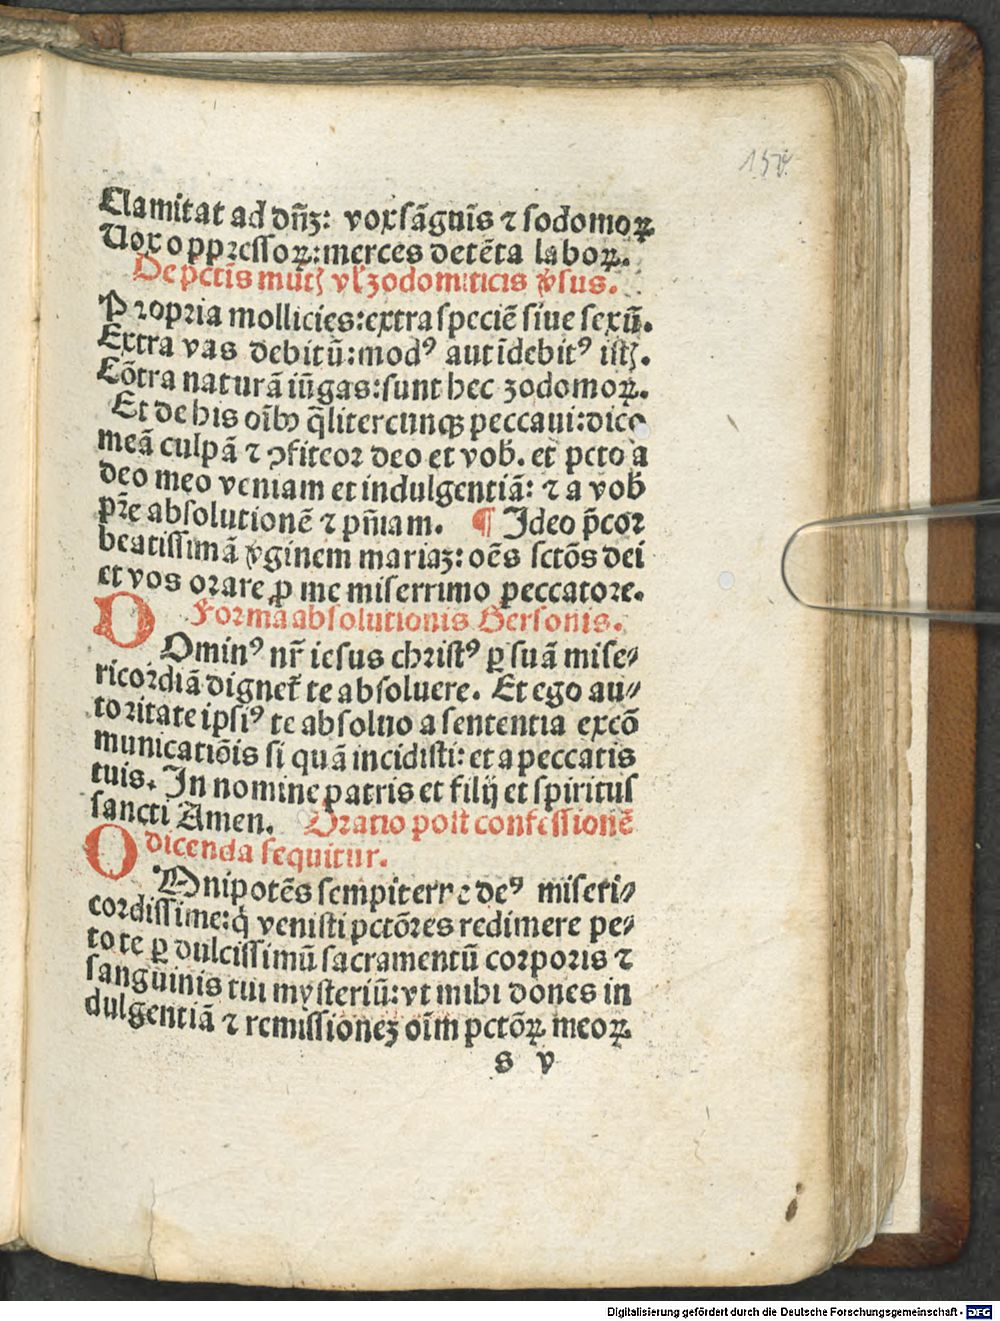 Clamitat ad dn̄ꝫ: vox sāguīs ⁊ sodomoꝝ
Vox oppꝛessoꝝ: merces detēta laboꝝ.
De pctīs mut vl zodomiticis ꝟsus.
Pꝛopꝛia mollicies: extra speciē siue sexū.
Extra vas debitū: modꝰ aut īdebitꝰ istꝭ.
Cōtra naturā iūgas: sunt hec zodomoꝝ.
Et de his oībꝰ q̄litercunqꝫ peccaui: dico
meā culpā ⁊ ꝯfiteoꝛ deo et vob̄. et peto a
deo meo veniam et indulgentiā: ⁊ a vob̄
pr̄e absolutionē ⁊ pn̄iam. ¶ Ideo p̄coꝛ
beatissimā ꝟginem mariaꝫ: oēs sctōs dei
et vos oꝛare ꝓ me miserrimo peccatoꝛe.
Foꝛma absolutionis Gersonis.
DOminꝰ nr̄ iesus christꝰ ꝑ suā mise⸗
ricoꝛdiā dignet̄ te absoluere. Et ego au⸗
toꝛitate ipsiꝰ te absoluo a sententia excō
municatiōis si quā incidisti: et a peccatis
tuis. In nomine patris et filij et spiritus
sancti Amen. Oꝛatio post confessionē
dicenda sequitur.
OMnipotēs sempiterne deꝰ miseri⸗
coꝛdissime: q̇ venisti pctōꝛes redimere pe⸗
to te ꝑ dulcissimū sacramentū coꝛpoꝛis ⁊
sanguinis tui mysteriū: vt mihi dones in
dulgentiā ⁊ remissioneꝫ oīm pctōꝝ meoꝝ
s v
Digitalisierung gefördert durch die Deutsche Forschungsgemeinschaft - DFG